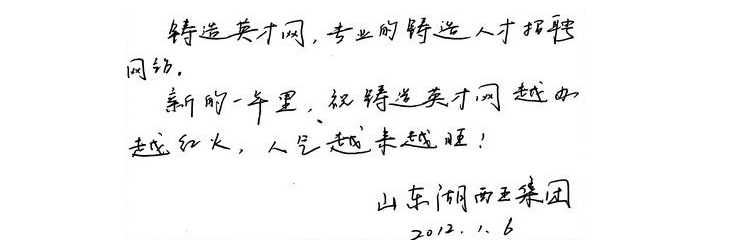 铸造英才网，专业的铸造人才招聘
网站。
新的一年里，祝铸造英才网越办
越红火，人气越来越旺！
山东湖西王集团
2012.1.6